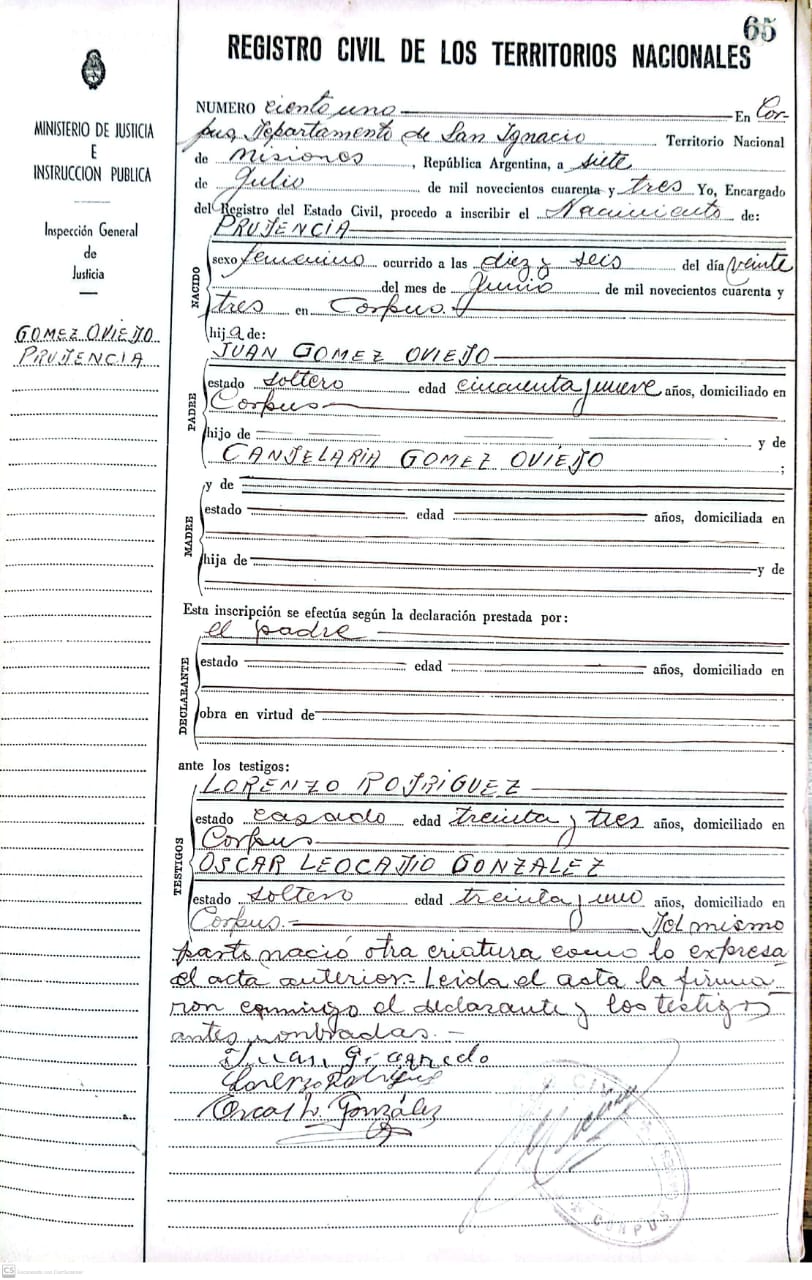 65
REGISTRO CIVIL DE LOS TERRITORIOS NACIONALES
MINISTERIO DE JUSTICIA
E
INSTRUCCION PUBLICA
Inspección General
de
Justicia
GOMEZ OVIEDO
PRUDENCIA
NUMERO ciento uno En Cor-
pus, Departamento de San Ignacio Territorio Nacional
de Misiones, República Argentina, a siete
de Julio de mil novecientos cuarenta y tres Yo, Encargado
del Registro del Estado Civil, procedo a inscribir el Nacimiento de:
NACIDO
PRUDENCIA
sexo femenino ocurrido a las diez y seis del día veinte
del mes de Junio de mil novecientos cuarenta y
tres en Corpus.
hija de:
PADRE
JUAN GOMEZ OVIEDO
estado soltero edad cincuenta y nueve años, domiciliado en
Corpus
hijo de y de
CANDELARIA GOMEZ OVIEDO ;
MADRE
y de
estado edad años, domiciliada en
hija de y de
Esta inscripción se efectúa según la declaración prestada por:
el padre
DECLARANTE
estado edad años, domiciliado en
obra en virtud de
ante los testigos:
TESTIGOS
LORENZO RODRIGUEZ
estado casado edad treinta y tres años, domiciliado en
Corpus
OSCAR LEOCADIO GONZALEZ
estado soltero edad treinta y uno años, domiciliado en
Corpus.- Del mismo
parto nació otra criatura como lo expresa
el acta anterior.- Leida el acta la firma-
ron conmigo el declarante y los testigos
antes nombrados.-
Juan G.
Lorenzo Rodriguez
Oscar L. González
CIVIL
CORPUS
CS